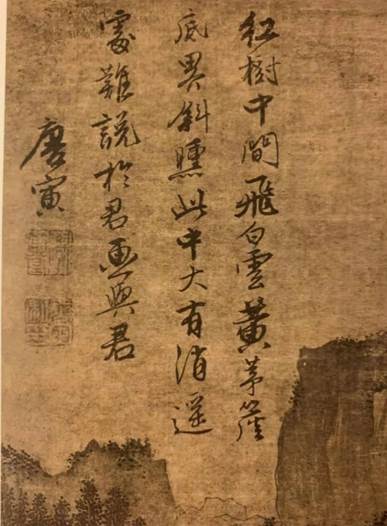 紅樹中間飛白雲黃茅簷
底界斜曛此中大有消遙
處難說於君畫與君
唐寅